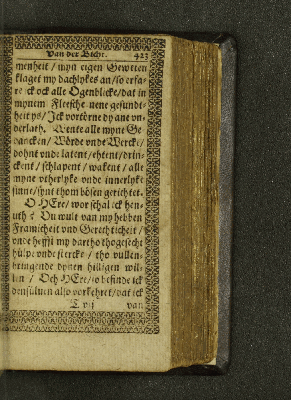 Van der Bicht. 423
menheit / myn eigen Geweten
klaget my dachlykes an / so erfa-
re ick ock alle Ogenblicke / dat in
mynem Fleesche nene gesundt-
heit ys / Ick vortörne dy ane un-
derlath. Wente alle myne Ge-
dancken / Wörde unde Wercke /
dohnt unde latent / ehtent / drin-
ckent / schlapent / wakent / alle
myne utherlyke unde innerlyke
sinne / synt thom bösen gerichtet.
O HEre / wor schal ick hen-
uth? Du wult van my hebben
Framicheit und Gerechticheit /
unde heffst my dartho thogesecht
hülpe unde stercke / tho vullen-
bringende dynen hilligen wil-
len / Och HEre / so befinde ick
densülven also vorkehret / dat ick
T vij van